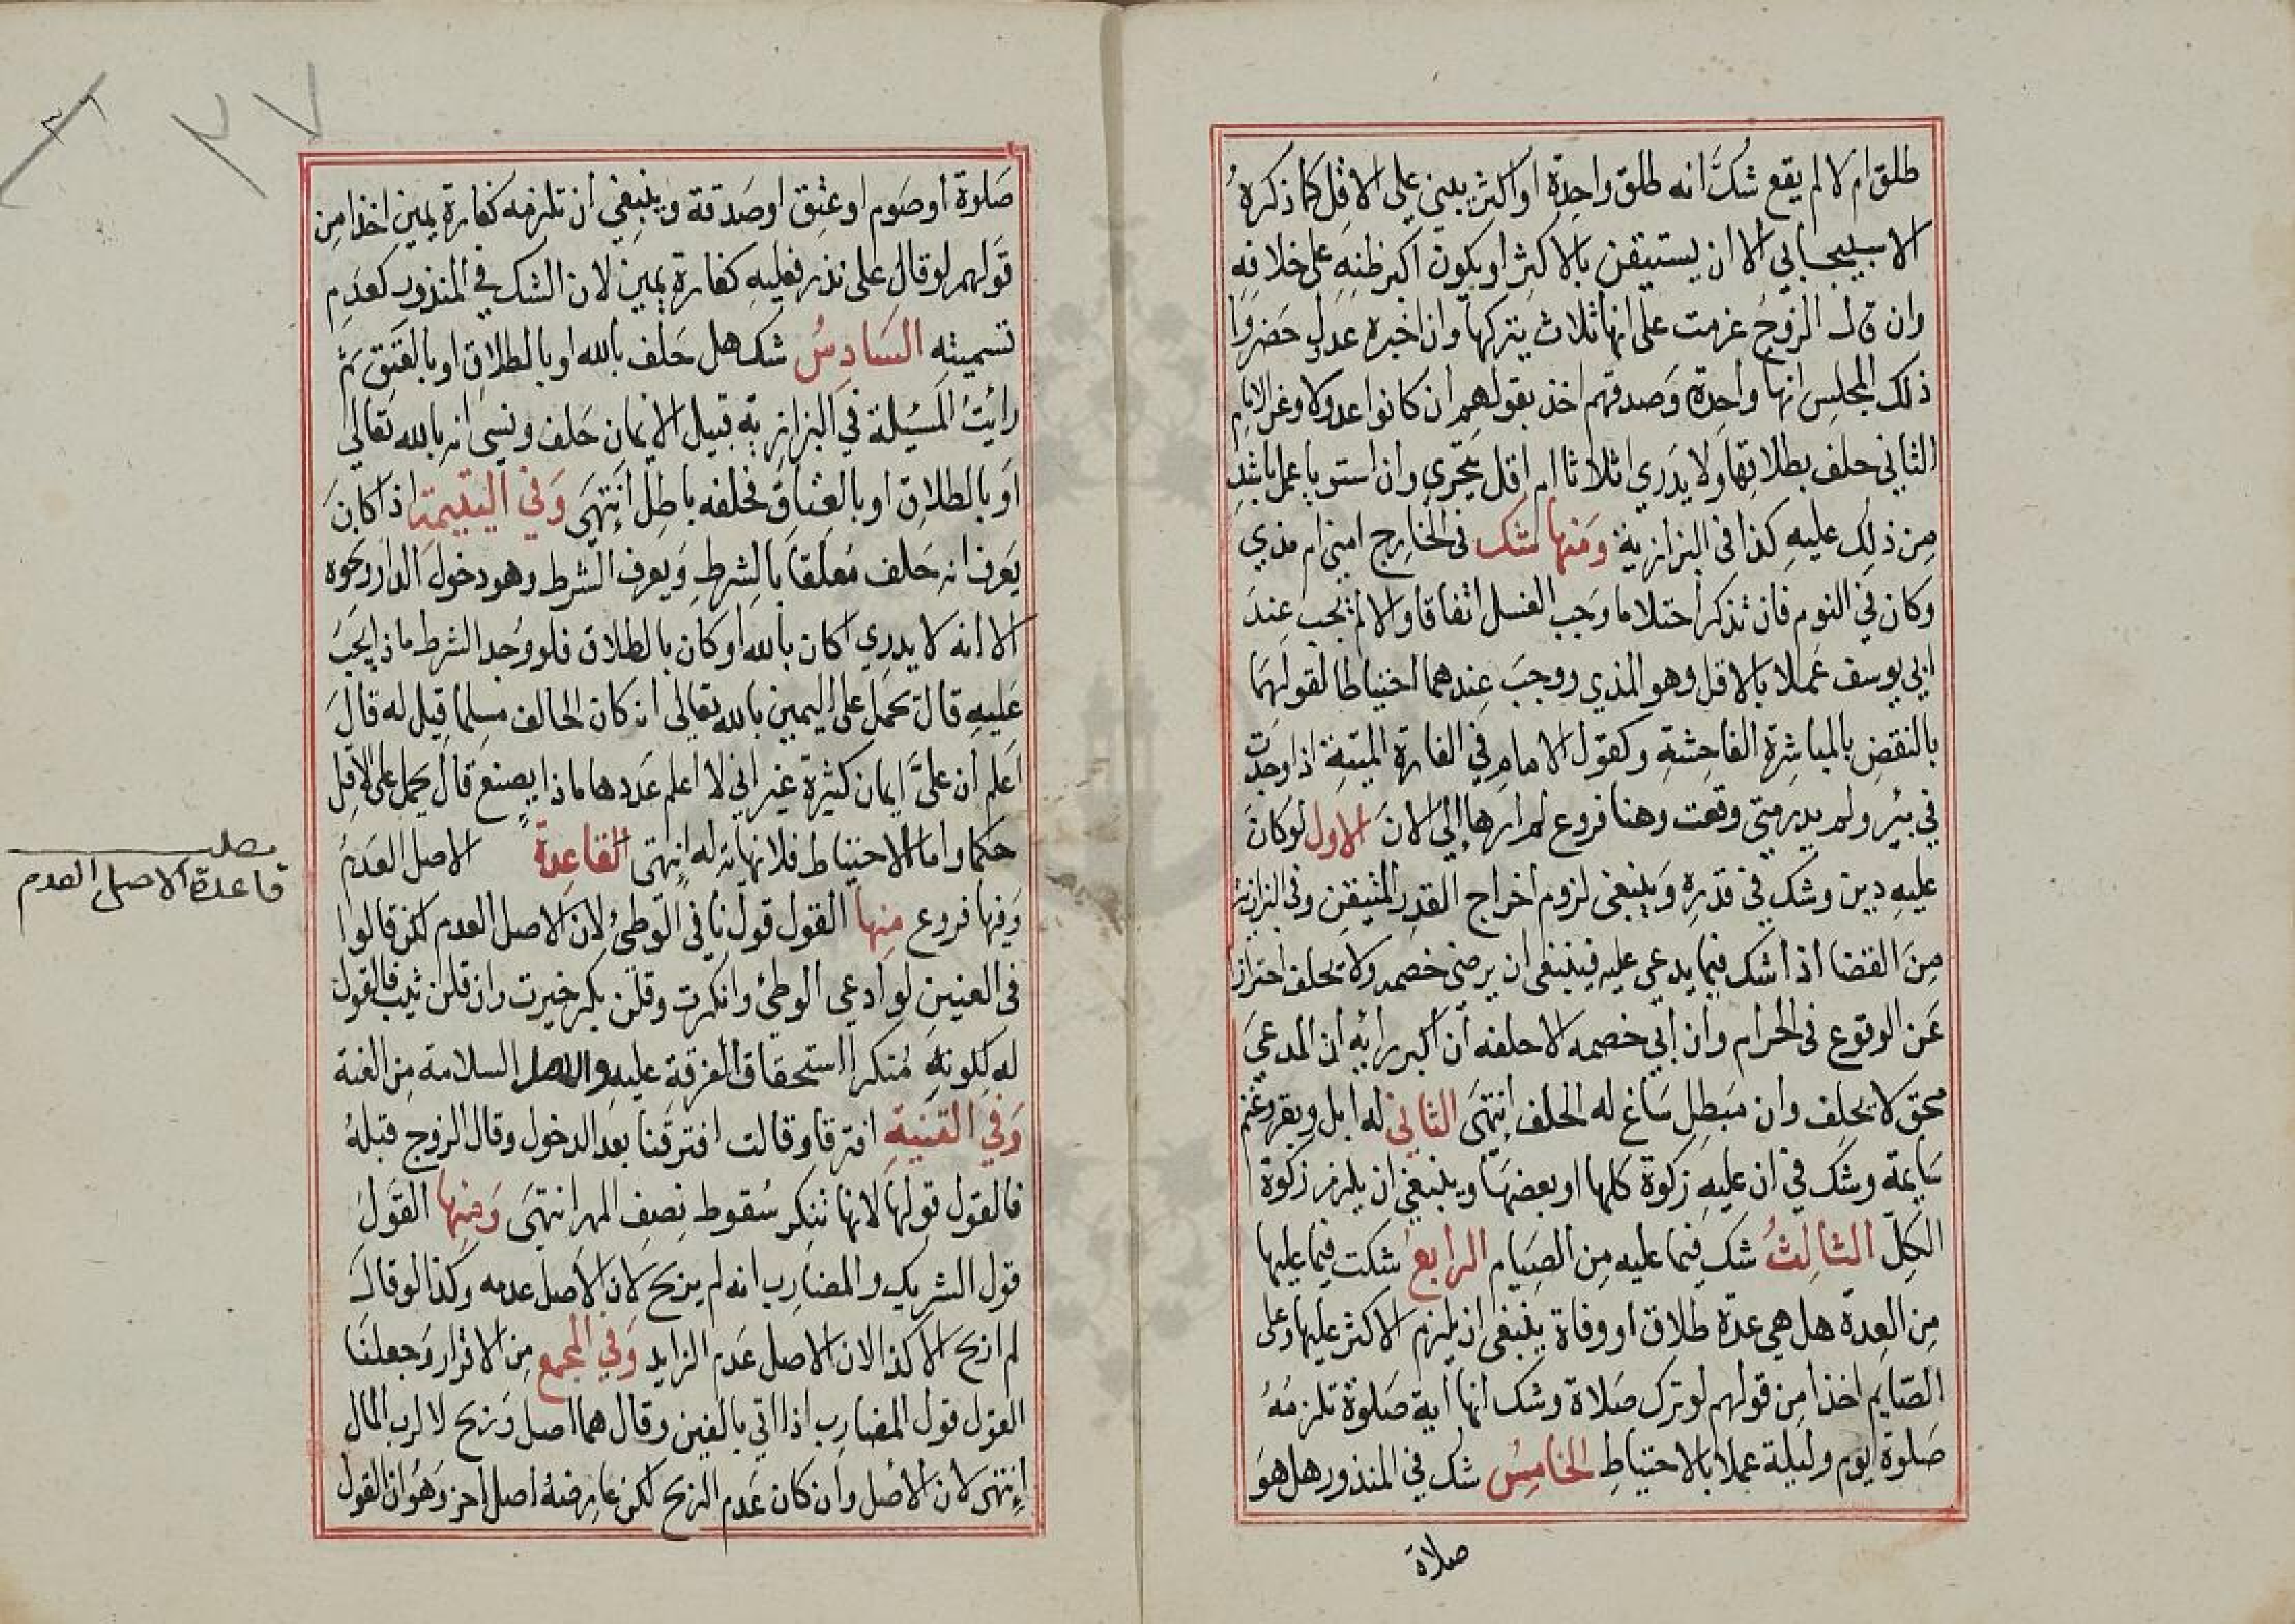 طلق ام لا لم يقع شك انه طلق واحدة او اكثر يبني على الاقل كما ذكره
الاسبيجابي الا ان يستيقن بالاكثر او يكون اكبر ظنه على خلافه
وان قال الزوج عزمت على انها ثلاث يتركها وان اخبره عدول حضروا
ذلك المجلس انها واحدة وصدقهم اخذ بقولهم ان كانوا عدولا وعن الامام
الثاني حلف بطلاقها ولا يدري اثلاثا ام اقل يتحرى وان استويا عمل باشد
من ذلك عليه كذا في البزازية ومنها شك في الخارج امني ام مذي
وكان في النوم فان تذكر احتلاما وجب الغسل اتفاقا والا لم تجب عند
ابي يوسف عملا بالاقل وهو المذي ووجب عندهما احتياطا لقولهما
بالنقض بالمباشرة الفاحشة وكقول الامام في الفارة الميتة اذا وجدت
في بئر ولم يدر متى وقعت وهنا فروع لم ارها الى الان الاول لو كان
عليه دين وشك في قدره وينبغي لزوم اخراج القدر المتيقن وفي البزازية
من القضا اذا شك فيما يدعى عليه فينبغي ان يرضي خصمه ولا يحلف احترازا
عن الوقوع في الحرام وان ابي خصمه الا حلفه ان اكبر رايه ان المدعي
محق لا يحلف وان مبطل ساغ له الحلف انتهى الثاني له ابل وبقر وغنم
سايمة وشك في ان عليه زكوة كلها او بعضها وينبغي ان يلزم زكوة
الكل الثالث شك فيما عليه من الصيام الرابع شكت فيما عليها
من العدة هل هي عدة طلاق او وفاة ينبغي ان يلزم الاكثر عليها وعلى
الصايم اخذا من قولهم لو ترك صلاة وشك انها اية صلوة تلزمه
صلوة يوم وليلة عملا بالاحتياط الخامس شك في المنذور هل هو
صلاة
٣٧
صلوة او صوم او عتق او صدقة وينبغي ان تلزمه كفارة يمين اخذا من
قولهم لو قال علي نذر فعليه كفارة يمين لان الشك في المنذور كعدم
تسميته السادس شك هل حلف بالله او بالطلاق او بالعتق ثم
رايت المسئلة في البزازية قبيل الايمان حلف ونسى انه بالله تعالى
او بالطلاق او بالعتاق فحلفه باطل انتهى وفي اليتيمة اذا كان
يعرف انه حلف معلقا بالشرط ويعرف الشرط وهو دخول الدار ونحوه
الا انه لا يدري اكان بالله او كان بالطلاق فلو وجد الشرط ماذا يجب
عليه قال يحمل على اليمين بالله تعالى ان كان الحالف مسلما قيل له قال
اعلم ان علي ايمان كثيرة غير اني لا اعلم عددها ماذا يصنع قال يحمل على الاقل
حكما واما الاحتياط فلا نهاية له انتهى القاعدة الاصل العدم
مطلب
قاعدة الاصل العدم
وفيها فروع منها القول قول نافي الوطئ لان الاصل العدم لكن قالوا
في العنين لو ادعى الوطئ وانكرت وقلن بكر خيرت وان قلن ثيب فالقول
له لكونه منكرا استحقاق الفرقة عليه والاصل السلامة من العنة
وفي القنية افترقا وقالت افترقنا بعد الدخول وقال الزوج قبله
فالقول قولها لانها تنكر سقوط نصف المهر انتهى ومنها القول
قول الشريك والمضارب انه لم يربح لان الاصل عدمه وكذا لو قال
لم اربح الا كذا لان الاصل عدم الزايد وفي المجمع من الاقرار وجعلنا
القول قول المضارب اذا اتى بالفين وقال هما اصل وربح لا لرب المال
انتهى لان الاصل وان كان عدم الربح لكن عارضه اصل اخر وهو ان القول